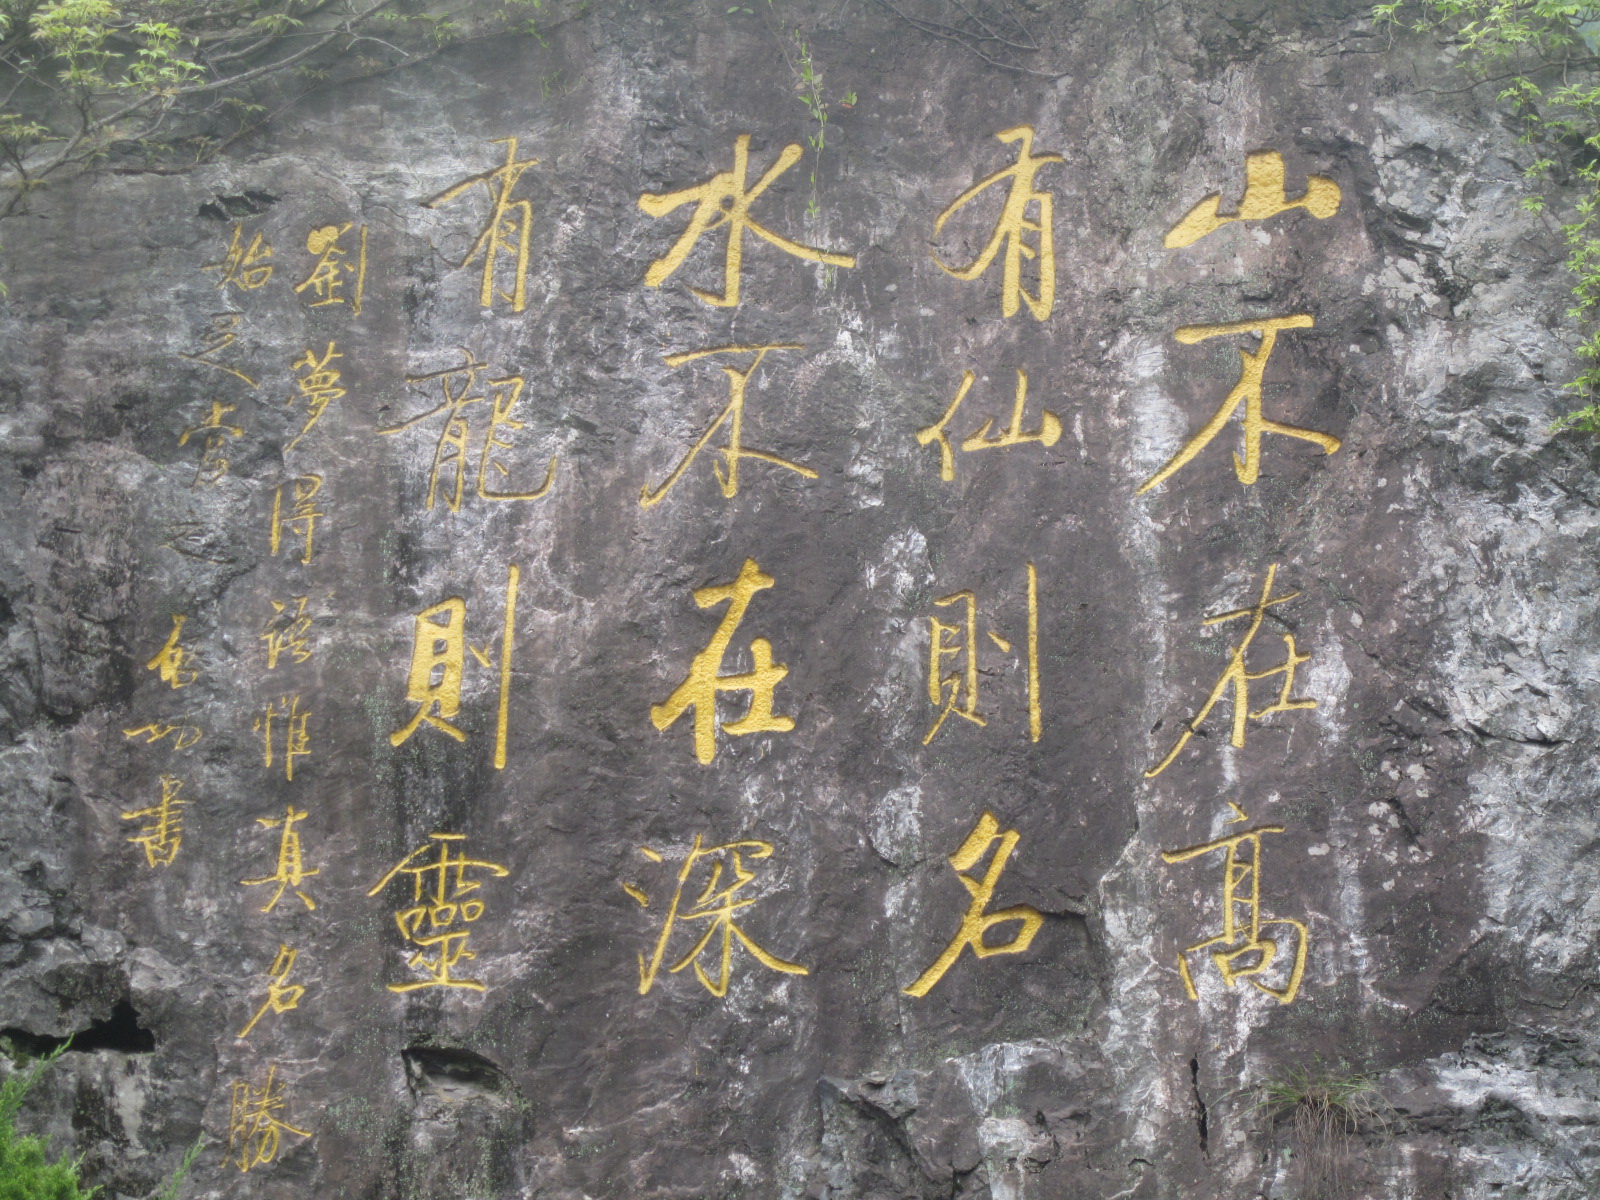 山不在高
有仙則名
水不在深
有龍則靈
劉夢得語惟真名勝
始足當之 啟功書